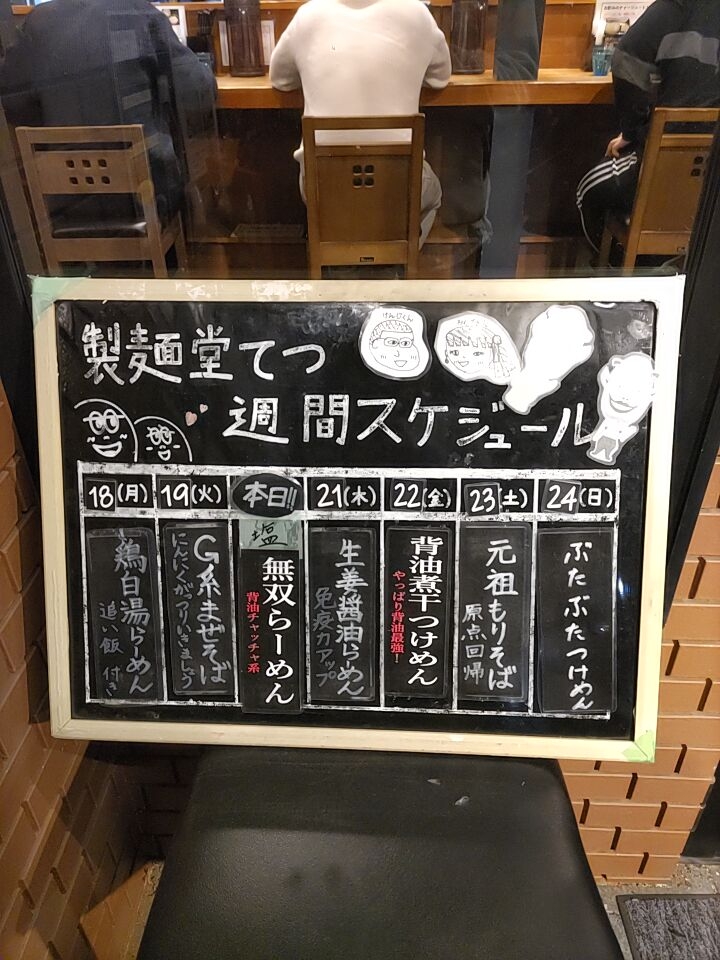 製麺堂てつ
週間スケジュール
げんじくん
18(月)
19(火)
本日!!
21(木)
22(金)
23(土)
24(日)
鶏白湯らーめん
追い飯 付き
G系まぜそば
にんにくガッツリいきましょう
塩
無双らーめん
背油チャッチャ系
生姜醤油らーめん
免疫力アップ
背油煮干つけめん
やっぱり背油最強!
元祖もりそば
原点回帰
ぶたぶたつけめん